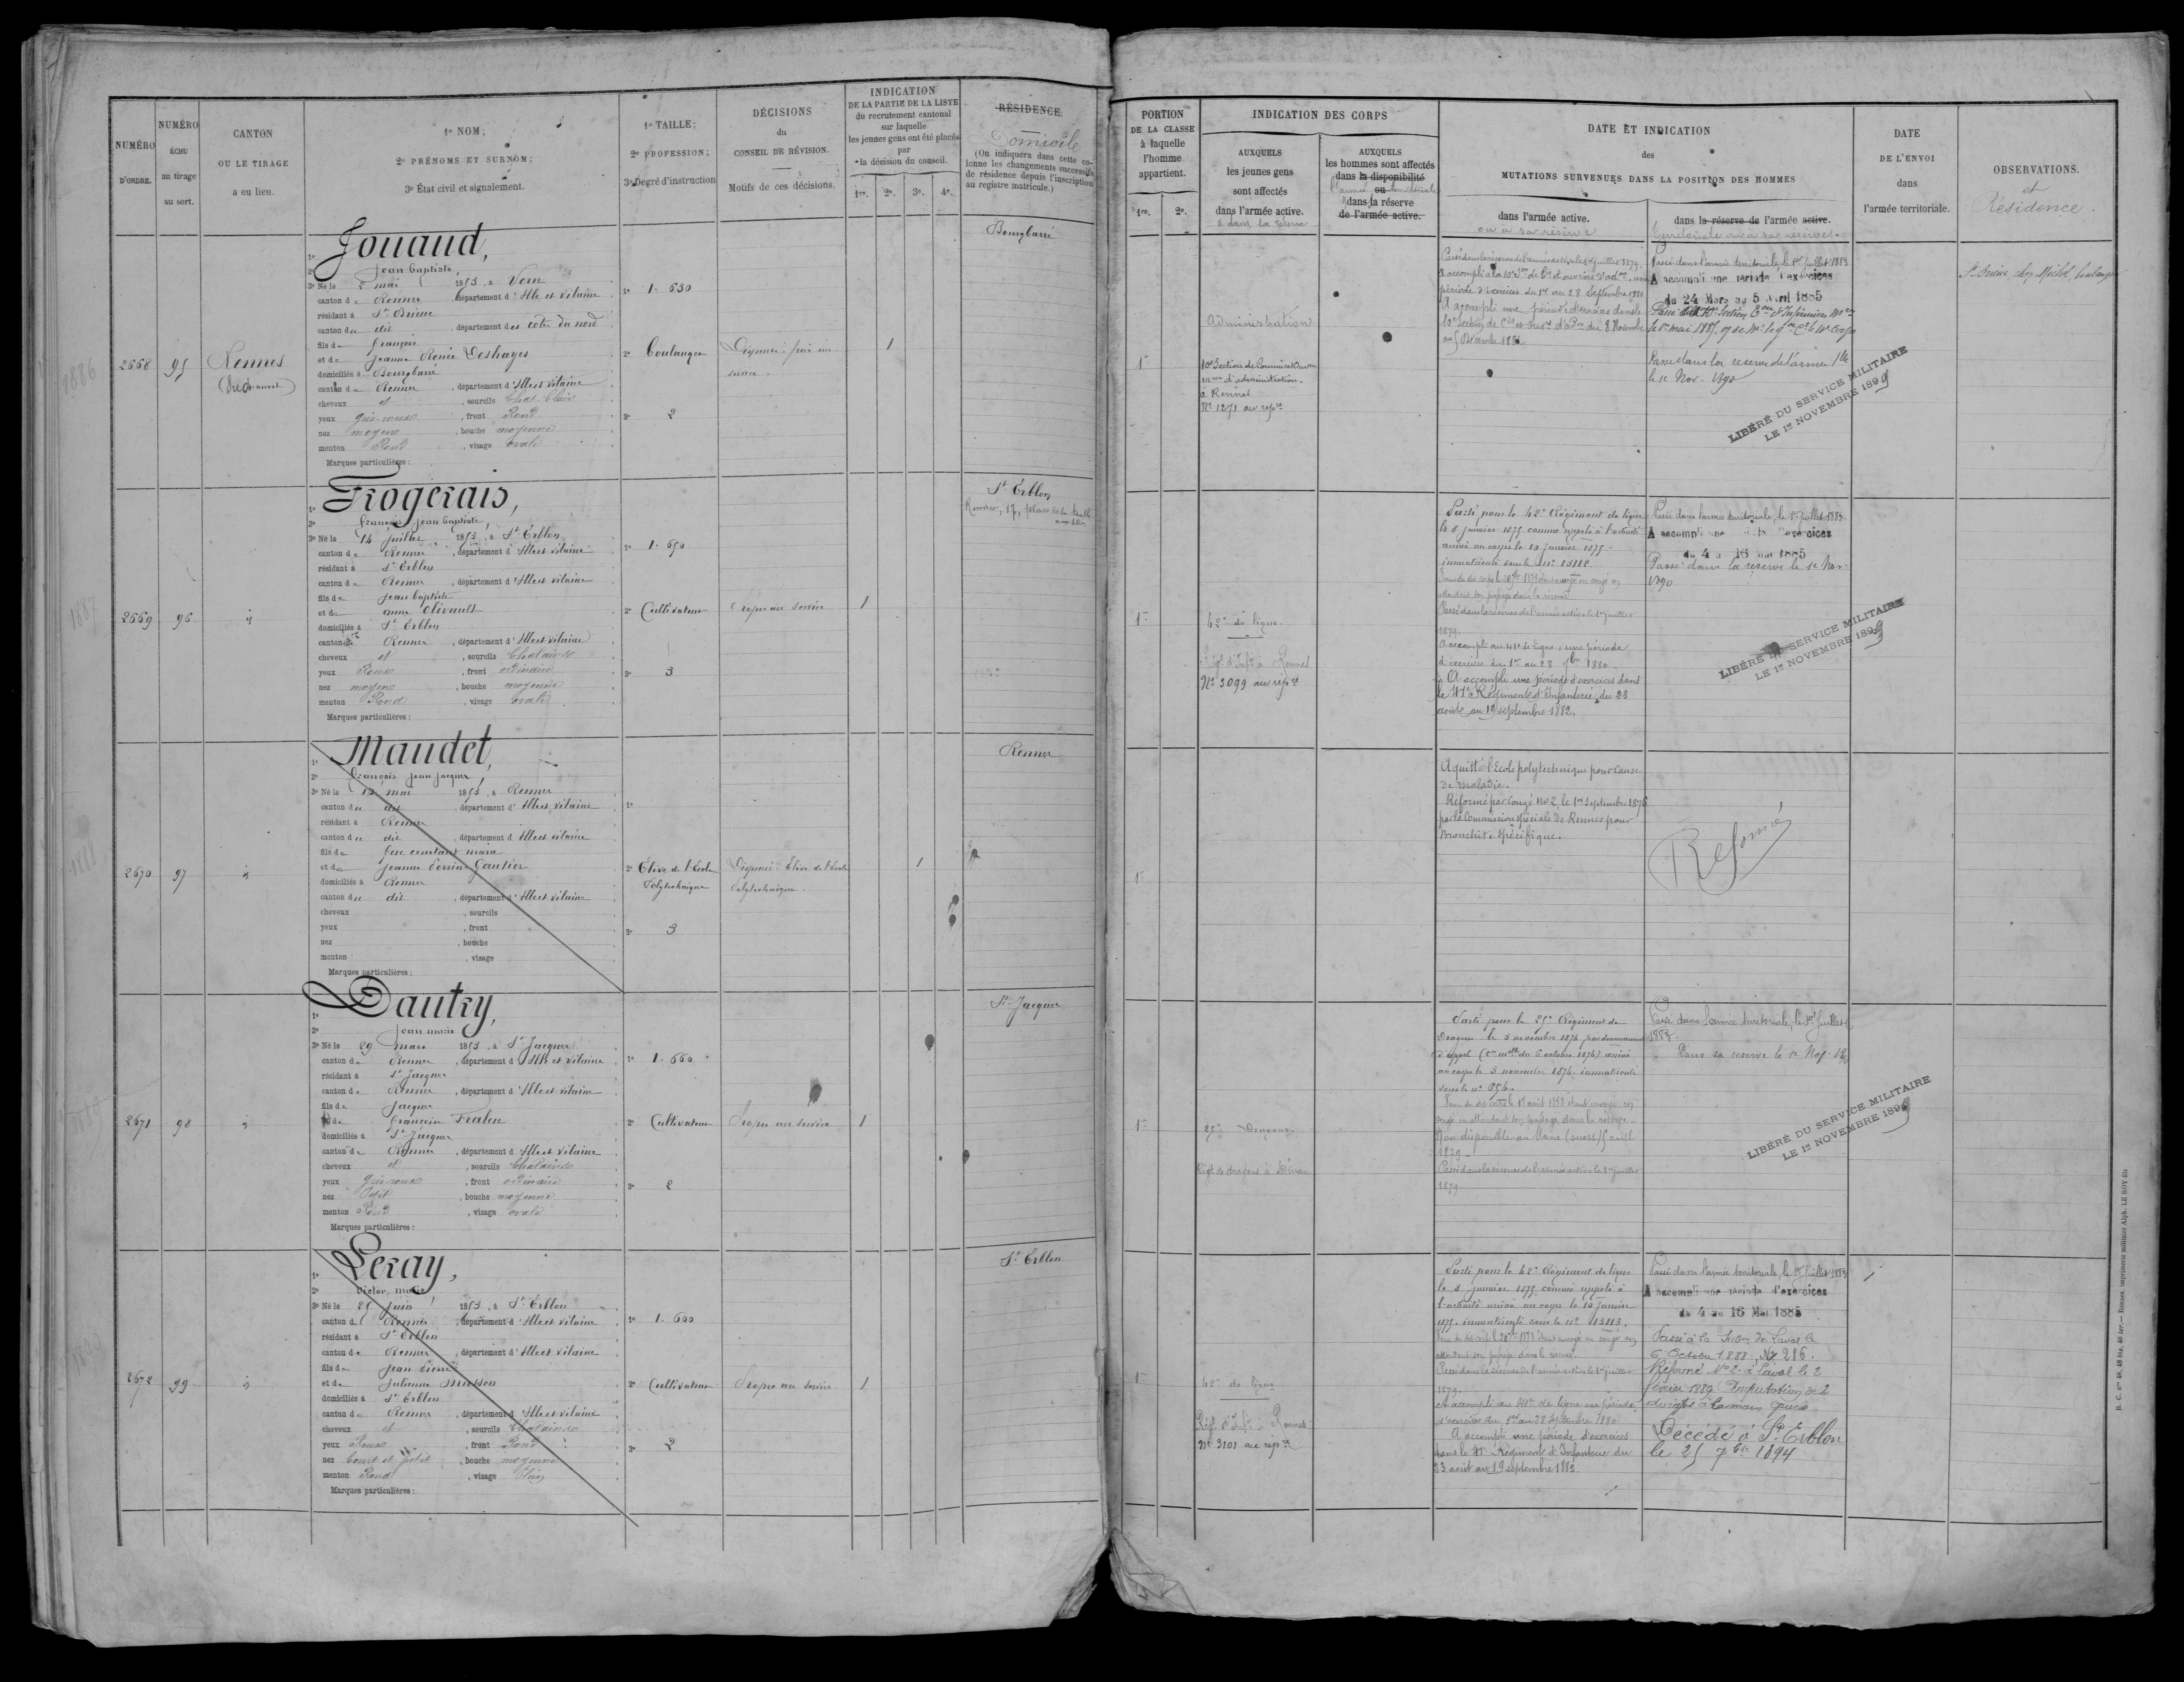 NUMÉRO
D'ORDRE.
NUMÉRO
ÉCHU
au tirage
au sort.
CANTON
OU LE TIRAGE
a eu lieu.
1º NOM;
2º PRÉNOMS ET SURNOM;
3º État civil et signalement.
1º TAILLE;
2º PROFESSION;
3º Degré d'instruction
DÉCISIONS
du
CONSEIL DE RÉVISION.
Motifs de ces décisions.
INDICATION
DE LA PARTIE DE LA LISTE
du recrutement cantonal
sur laquelle
les jeunes gens ont été placés
par
la décision du conseil.
1re. 2e. 3e. 4e.
RÉSIDENCE.
Domicile
(On indiquera dans cette co-
lonne les changements successifs
de résidence depuis l'inscription
au registre matricule.)
2668
95
Rennes
(Sud-ouest)
Jouaud,
Jean baptiste,
3º Né le 2 mai 1853, à Vern
canton de Rennes département d'Ille et Vilaine
résidant à St Brieuc
canton du dit département des côtes du nord
fils de françois
et de Jeanne Renée Deshayes
domiciliés à Bourgbarré
canton de Rennes, département d'Ille et Vilaine
cheveux et, sourcils Chat. Clair
yeux gris roux, front Rond
nez moyen, bouche moyenne
menton Rond, visage ovale
Marques particulières:
1º 1.630
2º boulanger
3º 2
Dispensé: frère au
service.
1
Bourgbarré
2669
96
id
Frogerais,
françois jean baptiste,
3º Né le 14 juillet 1853, à St Erblon
canton de Rennes, département d'Ille et Vilaine
résidant à St Erblon
canton de Rennes, département d'Ille et Vilaine
fils de jean baptiste
et de anne Olivault
domiciliés à St Erblon
canton de Rennes, département d'Ille et Vilaine
cheveux et, sourcils Chatains
yeux Roux, front ordinaire
nez moyen, bouche moyenne
menton Rond, visage ovale
Marques particulières:
1º 1.650
2º Cultivateur
3º 3
Propre au service
1
St Erblon
Rennes, 17, place de la halle
aux blés
2670
97
id
Maudet,
françois jean jacques,
3º Né le 12 mai 1853, à Rennes
canton du dit, département d'Ille et Vilaine
résidant à Rennes
canton du dit, département d'Ille et Vilaine
fils de feu constant marie
et de jeanne Perrine Gautier
domiciliés à Rennes
canton du dit, département d'Ille et Vilaine
cheveux, sourcils
yeux, front
nez, bouche
menton, visage
Marques particulières:
1º
2º Elève de l'école
Polytechnique
3º 3
Dispensé: Elève de l'école
Polytechnique.
1
Rennes
2671
98
id
Dautry,
jean marie
3º Né le 29 mars 1853, à St Jacques
canton de Rennes, département d'Ille et Vilaine
résidant à St Jacques
canton de Rennes, département d'Ille et Vilaine
fils de jacques
et de françoise Fraleu
domiciliés à St Jacques
canton de Rennes, département d'Ille et Vilaine
cheveux et, sourcils Chatains
yeux gris roux, front ordinaire
nez Petit, bouche moyenne
menton Rond, visage ovale
Marques particulières:
1º 1.660
2º Cultivateur
3º 2
Propre au service
1
St Jacques
2672
99
id
Leray,
Victor marie
3º Né le 25 juin 1853, à St Erblon
canton de Rennes, département d'Ille et Vilaine
résidant à St Erblon
canton de Rennes, département d'Ille et Vilaine
fils de jean Pierre
et de julienne Musson
domiciliés à St Erblon
canton de Rennes, département d'Ille et Vilaine
cheveux et, sourcils Chatains
yeux Roux, front Rond
nez court et petit, bouche moyenne
menton Rond, visage Plein
Marques particulières:
1º 1.600
2º Cultivateur
3º 2
Propre au service
1
St Erblon
PORTION
DE LA CLASSE
à laquelle
l'homme
appartient.
1re. 2e.
INDICATION DES CORPS
AUXQUELS
les jeunes gens
sont affectés
dans l'armée active.
et dans la réserve
AUXQUELS
les hommes sont affectés
dans la disponibilité
l'armée ou territoriale
dans la réserve
de l'armée active.
DATE ET INDICATION
des
MUTATIONS SURVENUES DANS LA POSITION DES HOMMES
dans l'armée active.
ou à sa réserve
dans la réserve de l'armée active.
territoriale ou à sa réserve.
DATE
DE L'ENVOI
dans
l'armée territoriale.
OBSERVATIONS.
et
Résidence
1re
Administration
10e Section de Commis et Ouvrs
mres d'administration.
à Rennes
No 1271 au repre
Passé dans la réserve de l'armée active le 1er juillet 1879.
A accompli à la 10e Son de Cis et ouvriers d'adon une
période d'exercices du 1er au 28 Septembre 1880
A accompli une période d'exercices dans la
10e Section de Cis et ouvrs d'Aon du 8 Novembre
au 5 Décembre 1882
Passé dans l'armée territoriale, le 1er Juillet 1883
A accompli une période d'exercices
du 24 Mars au 5 Avril 1885
Passé dans la réserve de l'armée tle
le 1er Nov. 1890
LIBÉRÉ DU SERVICE MILITAIRE
LE 1er NOVEMBRE 1899
St Brieuc, chez Michel, boulanger
1re
42e de ligne
Régt d'Infie à Rennes
No 3099 au repre
Parti pour le 42e Régiment de ligne
le 8 janvier 1875 comme appelé à l'activité
arrivé au corps le 10 janvier 1875.
immatriculé sous le no 13112
Passé dans la réserve de l'armée active le 1er juillet
1879.
A accompli au 41e de ligne une période
d'exercices du 1er au 28 7bre 1880
A accompli une période d'exercices dans
le 41e Régiment d'Infanterie, du 23
août au 19 septembre 1882.
Passé dans l'armée territoriale, le 1er Juillet 1883.
A accompli une période d'exercices
du 4 au 16 Mai 1885
Passé dans la réserve le 1er Nov.
1890
LIBÉRÉ DU SERVICE MILITAIRE
LE 1er NOVEMBRE 1899
1re
A quitté l'Ecole polytechnique pour cause
de maladie.
Réformé par Congé No 2, le 1er Septembre 1876
par la Commission spéciale de Rennes pour
Bronchite spécifique.
Réformé
1re
25e Dragons
Régt de dragons à Dinan
Parti pour le 25e Régiment de
Dragons le 5 novembre 1874 par devancement
d'appel (Cre mlle du 6 octobre 1874) arrivé
au corps le 5 novembre 1874. immatriculé
sous le no 954.
Passé dans la réserve de l'armée active le 1er juillet
1879.
Passé dans l'armée territoriale, le 1er Juillet
1883.
Dans sa réserve le 1er Nov. 1890
LIBÉRÉ DU SERVICE MILITAIRE
LE 1er NOVEMBRE 1899
1re
42e de ligne
Régt d'Infie à Rennes
No 3101 au repre
Parti pour le 42e Régiment de ligne
le 8 janvier 1875 comme appelé à
l'activité arrivé au corps le 10 janvier
1875. immatriculé sous le no 13113.
Passé dans la réserve de l'armée active le 1er juillet
1879.
A accompli au 41e de ligne une période
d'exercices du 1er au 28 Septembre 1880
A accompli une période d'exercices
dans le 41e Régiment d'Infanterie du
23 août au 19 septembre 1882.
Passé dans l'armée territoriale, le 1er Juillet 1883
A accompli une période d'exercices
du 4 au 16 Mai 1885
Passé à la Subon de Laval le
6 Octobre 1888, No 216.
Réformé No 2 à Laval le 2
février 1889 Amputation de 2
doigts à la main gauche
Décédé à St Erblon
le 25 7bre 1894
R. C. nos 48, 48 bis, 48 ter. — Rennes, imprimerie militaire Alph. LE ROY fils